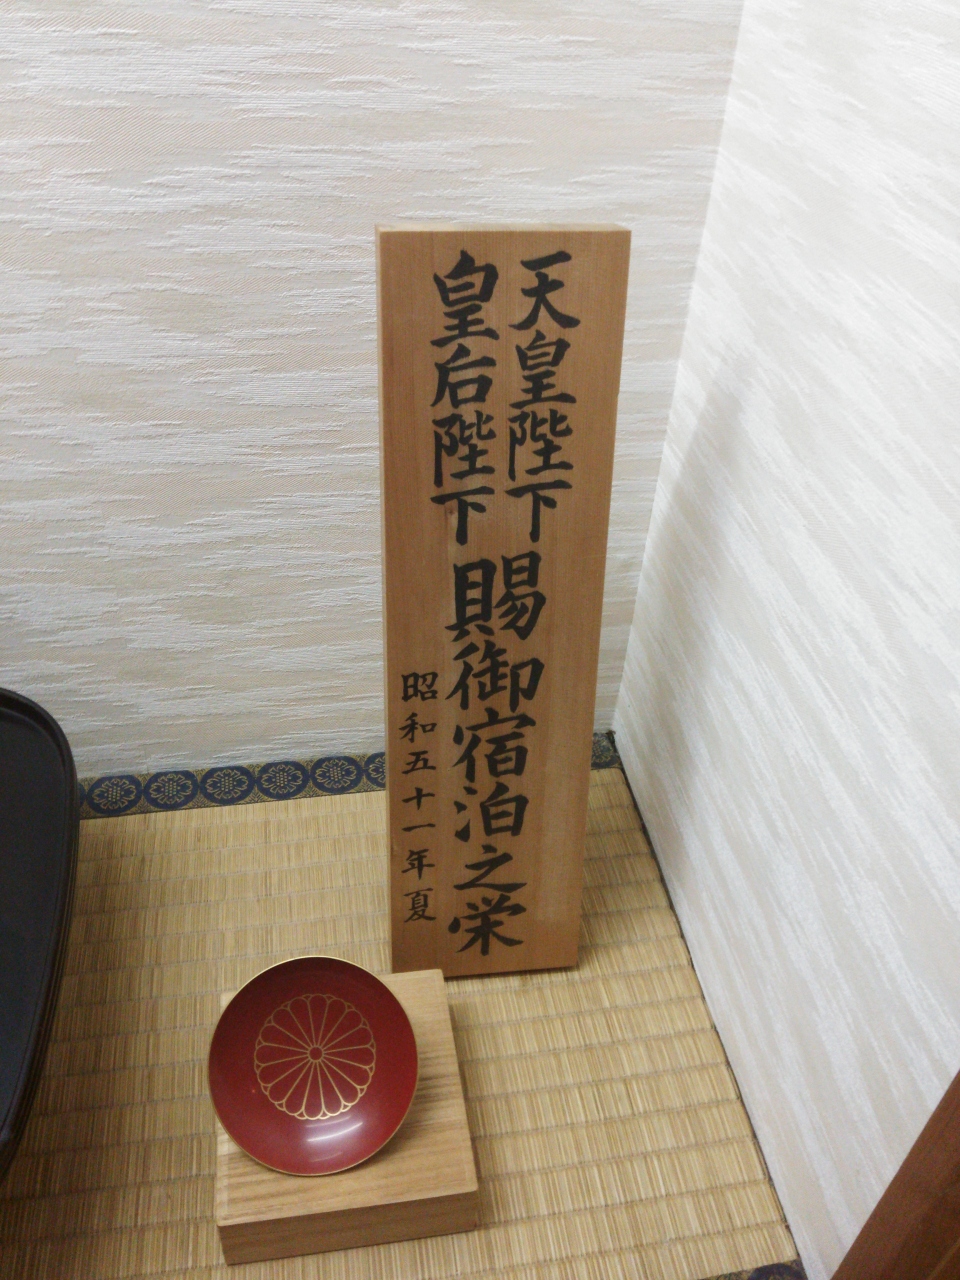 天皇陛下
皇后陛下
賜御宿泊之栄
昭和五十一年夏